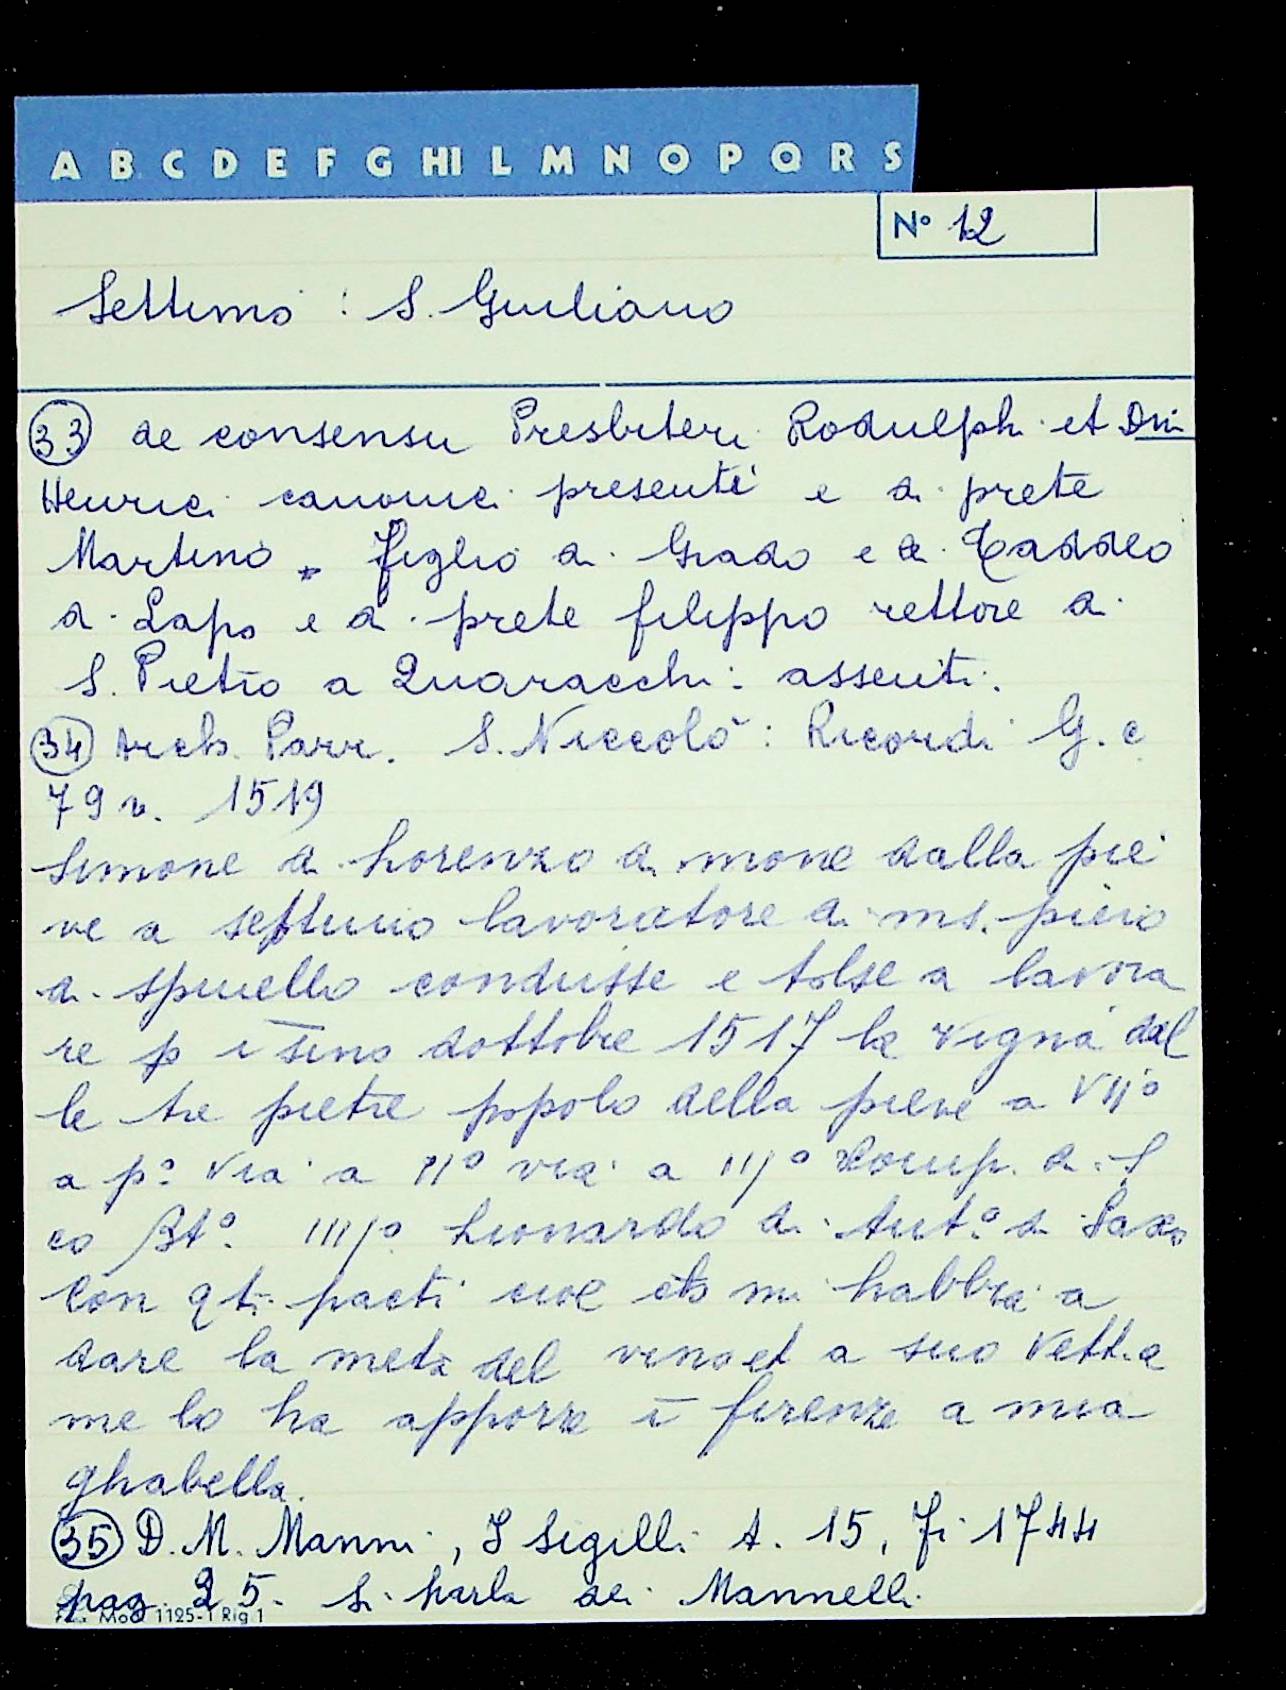 A B C D E F G HI L M N O P Q R S
N° 12
Settimo : S. Giuliano
33 de consensu Presbiteri Rodulphi et Dni
Henrici canonici presenti e di prete
Martino figlio di Grado e di Taddeo
di Lapo e di prete filippo rettore di
S. Pietro a Quaracchi : assenti.
34 Arch. Parr. S. Niccolò : Ricordi G. c
79 v. 1519
Simone di Lorenzo di mone dalla pie
ve a septimo lavoratore di ms. piero
di spinello condusse e tolse a lavora
re p i sino dottobre 1517 la vigna dal
le tre pietre popolo della pieve a VII°
a p° via a II° via a III° Comp. di S
co Bt°. IIII° Lionardo di Ant.° di
Con qti pacti cioe ch mi habbia a
dare la meta del vino et a suo vett.a
me lo ha apporre ī firenze a mia
ghabella.
35 D. M. Manni, I Sigilli t. 15, Fi 1744
pag. 25. Si parla dei Mannelli.
Mod 1125-1 Rig 1